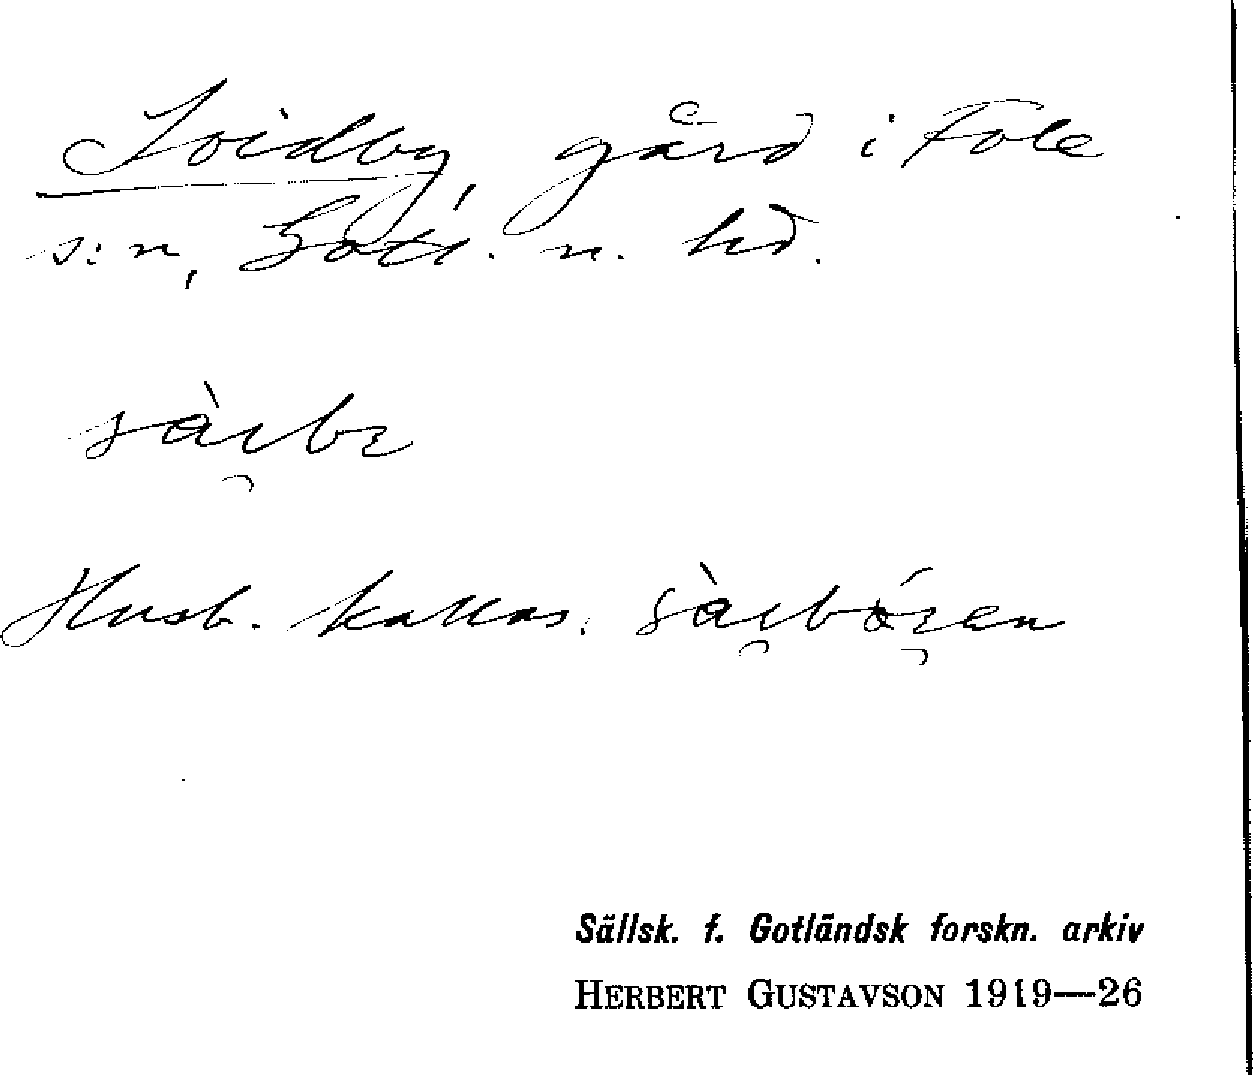 Soidby, gård i Fole
s:n, Gotl. n. hd.
sàịbı
Husb. kallas. sàịbóı̯en
Sällsk. f. Gotländsk forskn. arkiv
HERBERT GUSTAVSON 1919—26